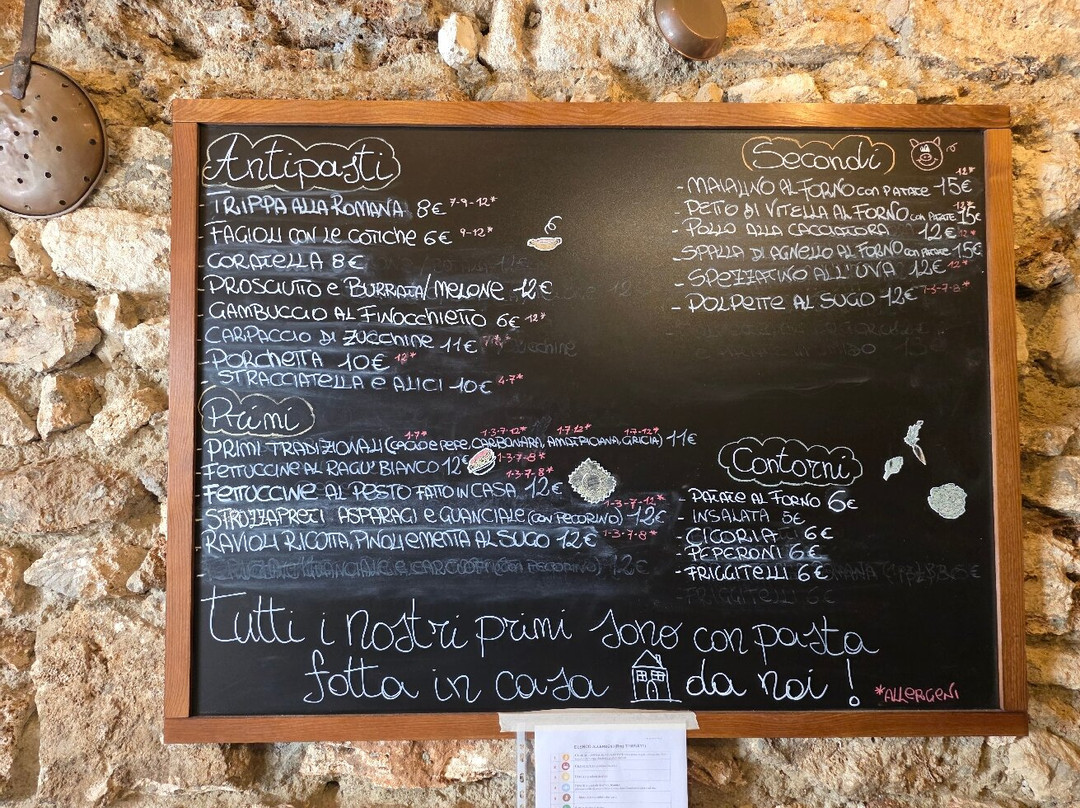 Antipasti
- TRIPPA ALLA ROMANA 8€ 7-9-12*
- FAGIOLI CON LE COTICHE 6€ 9-12*
- CORATELLA 8€
- PROSCIUTO e BURRATA/MELONE 12€
- GAMBUCCIO AL FINOCCHIETTO 6€ 12*
- CARPACCIO DI ZUCCHINE 11€
- PORCHETTA 10€ 12*
- STRACCIATELLA e ALICI 10€ 4-7*
Primi
1-7* 1-3-7-12* 1-7-12* 1-7-12*
- PRIMI TRADIZIONALI (CACIO E PEPE, CARBONARA, AMATRICIANA, GRICIA) 11€
- FETTUCCINE AL RAGU' BIANCO 12€ 1-3-7-8*
1-3-7-8*
- FETTUCCINE AL PESTO FATTO IN CASA 12€
1-3-7-12*
- STROZZAPRETI ASPARAGI e GUANCIALE (CON PECORINO) 12€
- RAVIOLI RICOTTA, PINOLI E MENTA AL SUGO 12€ 1-3-7-8*
Secondi
12*
- MAIALINO AL FORNO CON PATATE 15€
- PETTO DI VITELLA AL FORNO CON PATATE 15€
- POLLO ALLA CACCIATORA 12€ 12*
- SPALLA DI AGNELLO AL FORNO CON PATATE 15€
- SPEZZATINO ALL'UVA 12€ 12*
- POLPETTE AL SUGO 12€ 1-3-7-8*
Contorni
- PATATE AL FORNO 6€
- INSALATA 5€
- CICORIA 6€
- PEPERONI 6€
- FRIGGITELLI 6€
Tutti i nostri primi sono con pasta
fatta in casa da noi!
*ALLERGENI